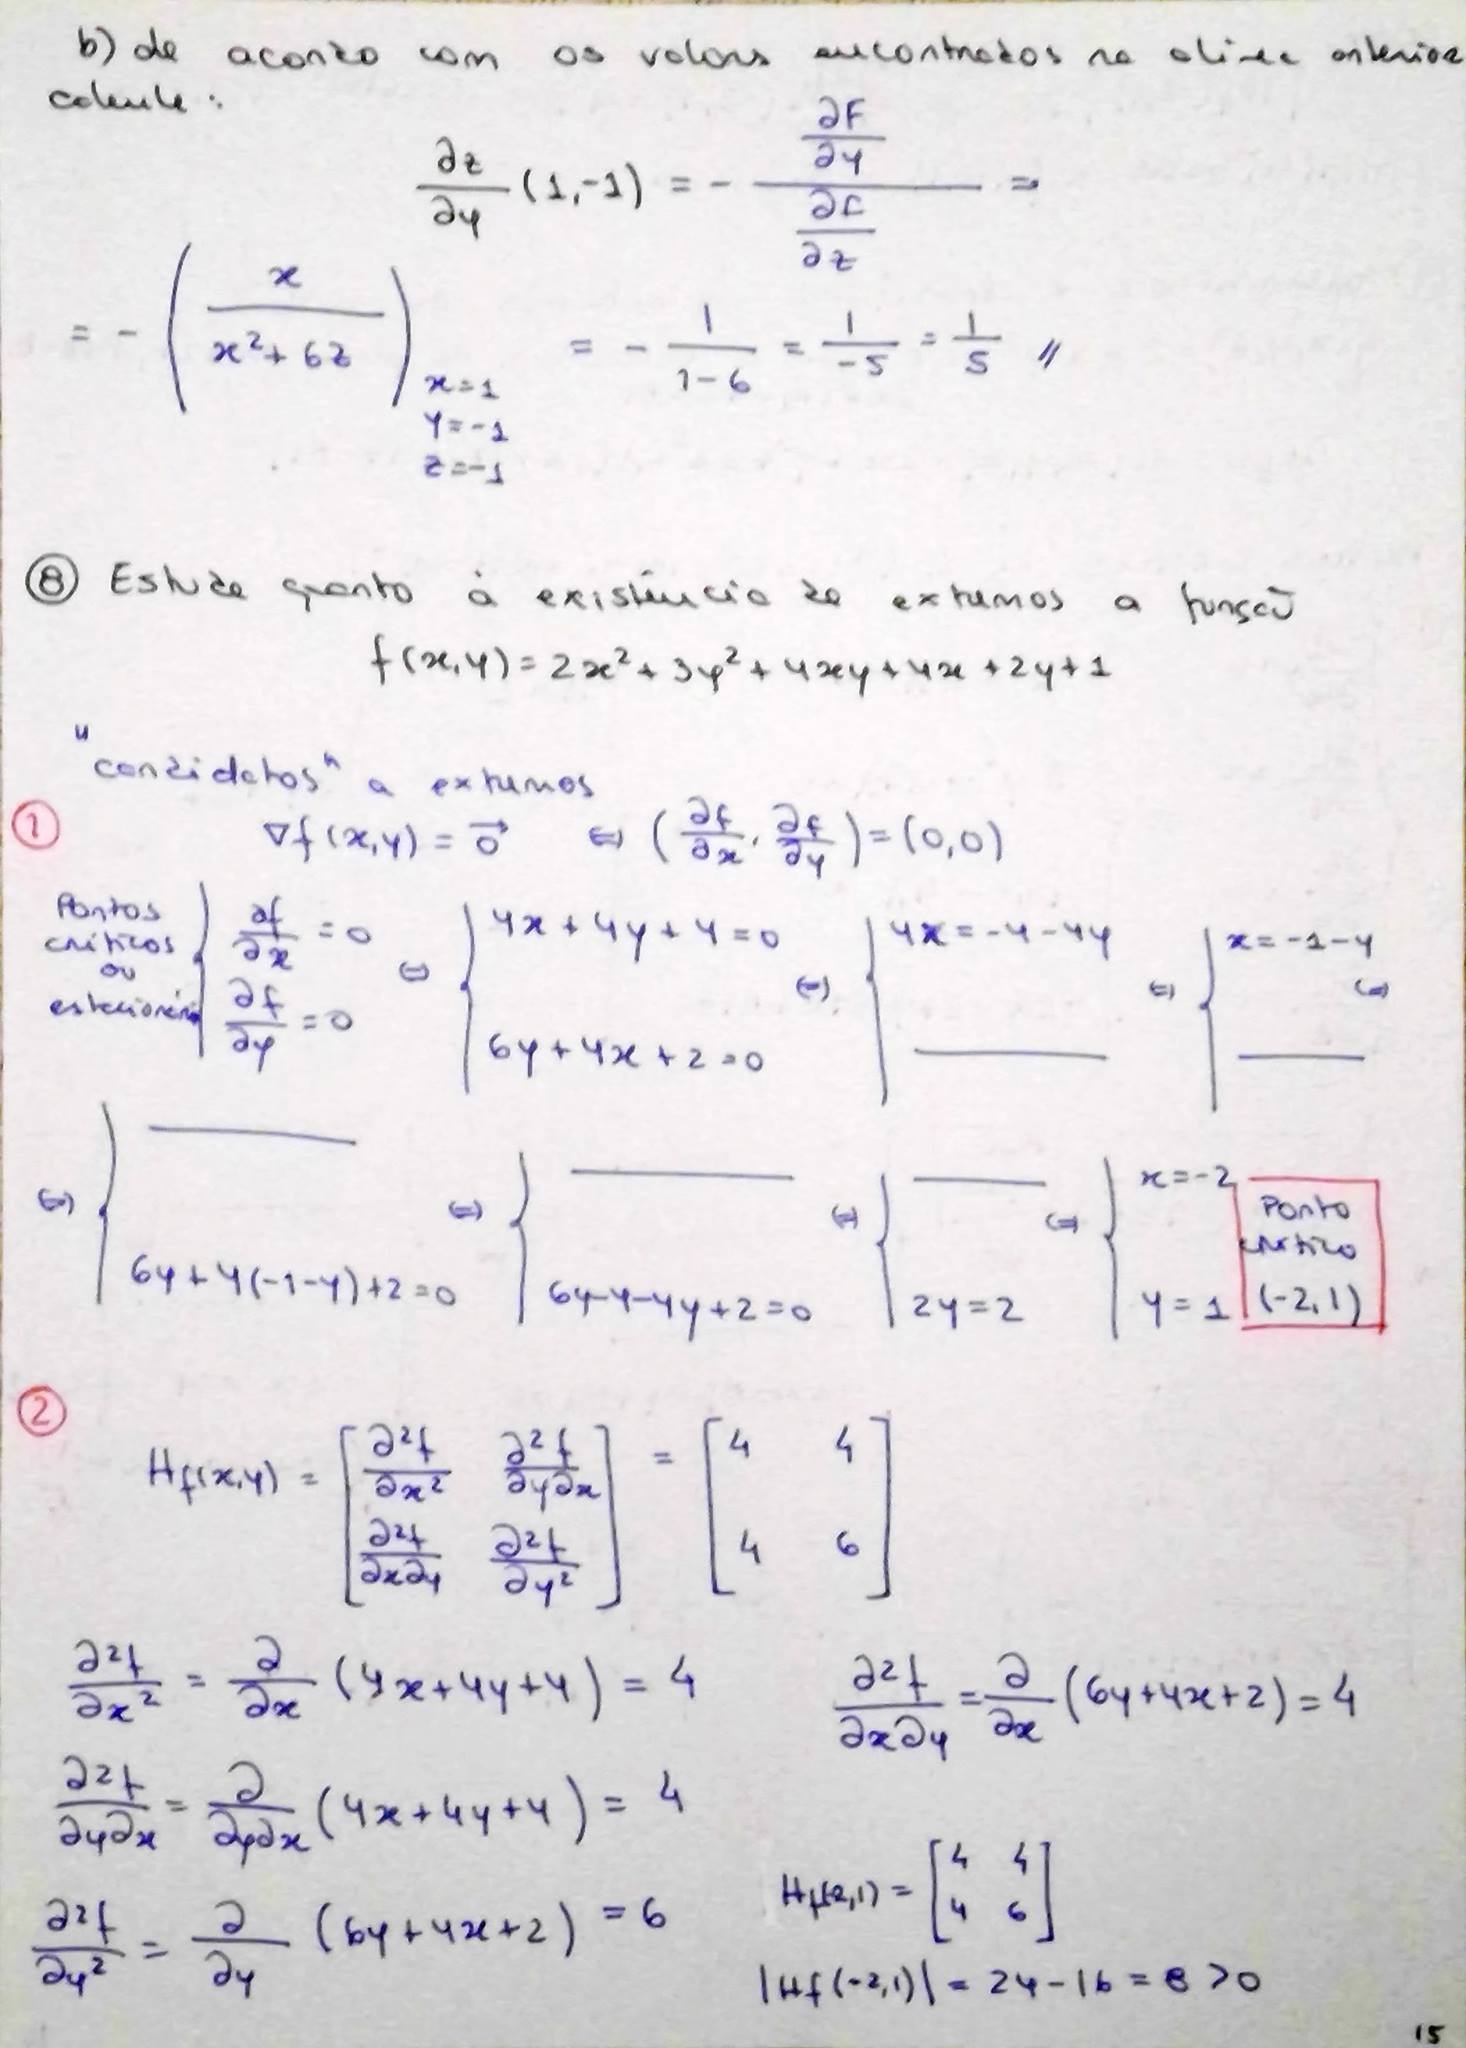 b) de acordo com os valores encontrados na alínea anterior
calcule:
∂z/∂y (1,-1) = - (∂F/∂y)/(∂F/∂z) =
= - (x/(x²+6z)) x=1 y=-1 z=-1 = - 1/(1-6) = 1/-5 = 1/5 //
⑧ Estude quanto à existência de extremos a função
f(x,y) = 2x² + 3y² + 4xy + 4x + 2y + 1
"candidatos" a extremos
① ∇f(x,y) = 0⃗ ⇔ (∂f/∂x, ∂f/∂y) = (0,0)
Pontos críticos ou estacionários { ∂f/∂x = 0 ; ∂f/∂y = 0 ⇔ { 4x + 4y + 4 = 0 ; 6y + 4x + 2 = 0 ⇔ { 4x = -4-4y ; ——— ⇔ { x = -1-y ; ——— ⇔
⇔ { ——— ; 6y + 4(-1-y) + 2 = 0 ⇔ { ——— ; 6y-4-4y+2=0 ⇔ { ——— ; 2y = 2 ⇔ { x = -2 ; y = 1
Ponto
crítico
(-2,1)
② Hf(x,y) = [ ∂²f/∂x² ∂²f/∂y∂x ; ∂²f/∂x∂y ∂²f/∂y² ] = [ 4 4 ; 4 6 ]
∂²f/∂x² = ∂/∂x (4x+4y+4) = 4
∂²f/∂x∂y = ∂/∂x (6y+4x+2) = 4
∂²f/∂y∂x = ∂/∂y∂x (4x+4y+4) = 4
Hf(-2,1) = [ 4 4 ; 4 6 ]
∂²f/∂y² = ∂/∂y (6y+4x+2) = 6
|Hf(-2,1)| = 24-16 = 8 > 0
15